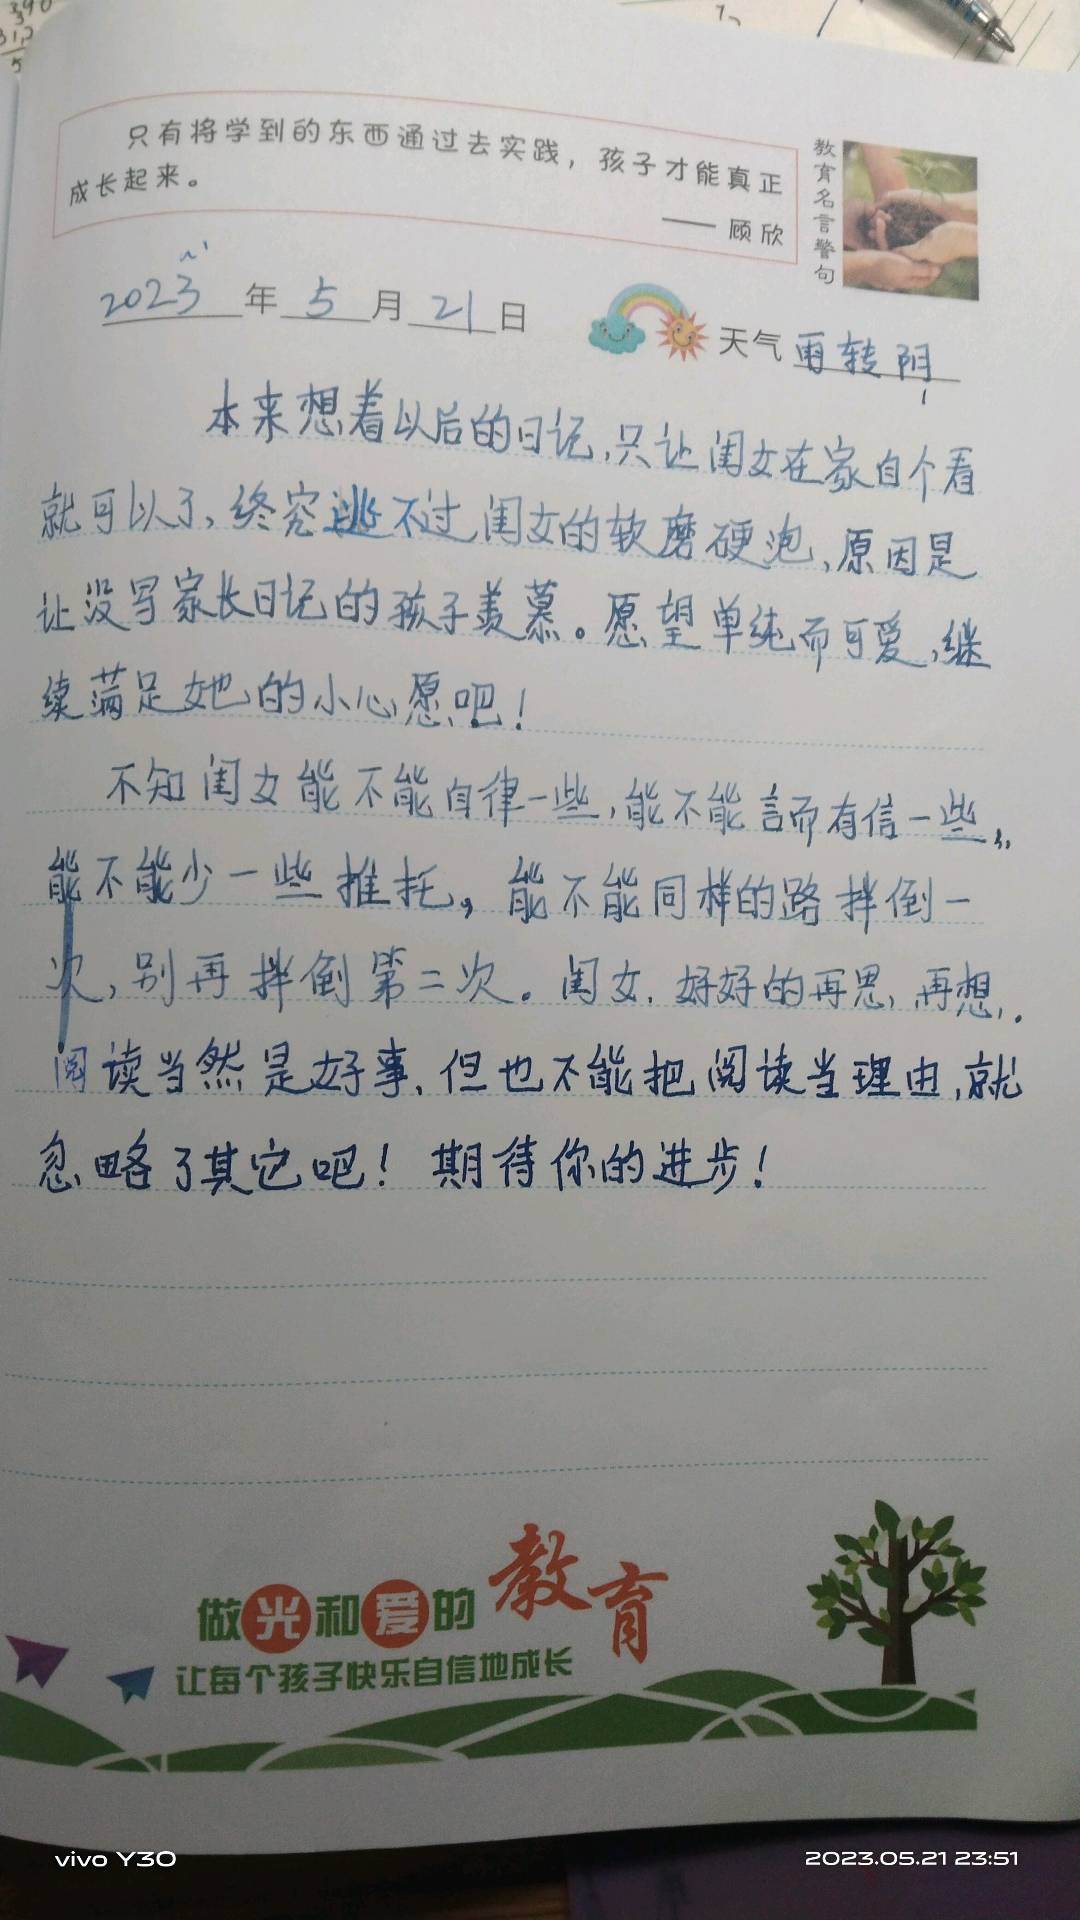 只有将学到的东西通过去实践，孩子才能真正
成长起来。
—— 顾欣
教育名言警句
2023年5月21日
天气雨转阴
本来想着以后的日记，只让闺女在家自个看
就可以了，终究逃不过闺女的软磨硬泡，原因是
让没写家长日记的孩子羡慕。愿望单纯而可爱，继
续满足她的小心愿吧！
不知闺女能不能自律一些，能不能言而有信一些，
能不能少一些推托，能不能同样的路拌倒一
次，别再拌倒第二次。闺女，好好的再思，再想，.
阅读当然是好事，但也不能把阅读当理由，就
忽略了其它吧！期待你的进步！
做光和爱的教育
让每个孩子快乐自信地成长
vivo Y30
2023.05.21 23:51